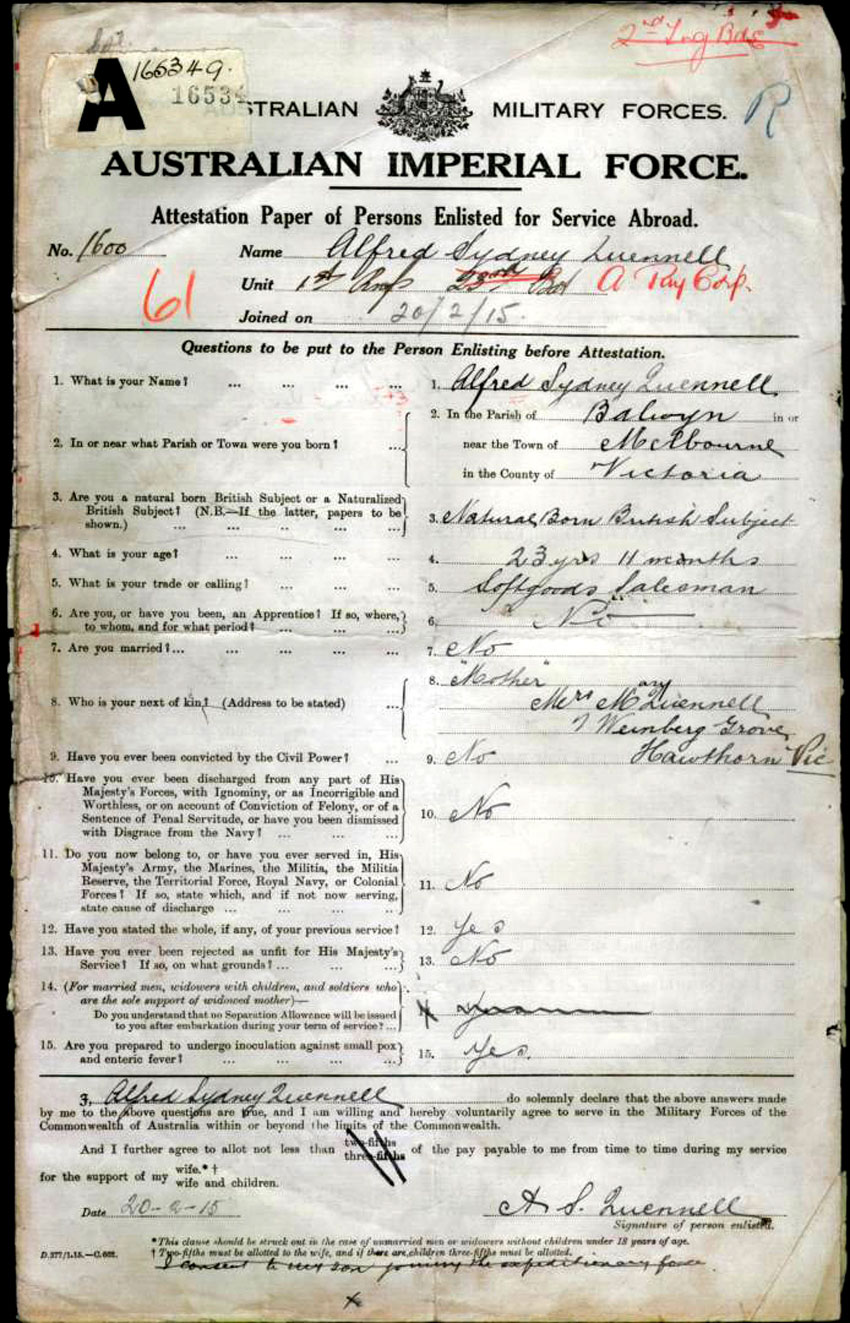 2nd Ing Bde
A 165349.
16534
AUSTRALIAN MILITARY FORCES. R
AUSTRALIAN IMPERIAL FORCE.
Attestation Paper of Persons Enlisted for Service Abroad.
No. 1600 Name Alfred Sydney Quennell
61 Unit 1st Rnfs 23rd Bat A Pay Corp.
Joined on 20/2/15.
Questions to be put to the Person Enlisting before Attestation.
1. What is your Name? ... ... ... ... 1. Alfred Sydney Quennell
2. In or near what Parish or Town were you born? ... 2. In the Parish of Balwyn in or
near the Town of Melbourne
in the County of Victoria
3. Are you a natural born British Subject or a Naturalized
British Subject? (N.B.—If the latter, papers to be
shown.) ... ... ... ... ... 3. Natural Born British Subject
4. What is your age? ... ... ... ... 4. 23 yrs 11 months
5. What is your trade or calling? ... ... ... 5. Softgoods Salesman
6. Are you, or have you been, an Apprentice? If so, where,
to whom, and for what period? ... ... ... 6. No
7. Are you married? ... ... ... ... ... 7. No
8. Who is your next of kin? (Address to be stated) ... 8. "Mother"
Mrs Mary Quennell
7 Weinberg Grove
Hawthorn Vic
9. Have you ever been convicted by the Civil Power? ... 9. No
10. Have you ever been discharged from any part of His
Majesty's Forces, with Ignominy, or as Incorrigible and
Worthless, or on account of Conviction of Felony, or of a
Sentence of Penal Servitude, or have you been dismissed
with Disgrace from the Navy? ... ... ... 10. No
11. Do you now belong to, or have you ever served in, His
Majesty's Army, the Marines, the Militia, the Militia
Reserve, the Territorial Force, Royal Navy, or Colonial
Forces? If so, state which, and if not now serving,
state cause of discharge ... ... ... ... 11. No
12. Have you stated the whole, if any, of your previous service? 12. Yes
13. Have you ever been rejected as unfit for His Majesty's
Service? If so, on what grounds? ... ... ... 13. No
14. (For married men, widowers with children, and soldiers who
are the sole support of widowed mother)—
Do you understand that no Separation Allowance will be issued
to you after embarkation during your term of service? ...
15. Are you prepared to undergo inoculation against small pox
and enteric fever? ... ... ... ... 15. Yes.
I, Alfred Sydney Quennell do solemnly declare that the above answers made
by me to the above questions are true, and I am willing and hereby voluntarily agree to serve in the Military Forces of the
Commonwealth of Australia within or beyond the limits of the Commonwealth.
And I further agree to allot not less than two-fifths three-fifths of the pay payable to me from time to time during my service
for the support of my wife.*† wife and children.
Date 20-2-15 A S. Quennell
Signature of person enlisted.
*This clause should be struck out in the case of unmarried men or widowers without children under 18 years of age.
D.277/1.15.—C.602. † Two-fifths must be allotted to the wife, and if there are children three-fifths must be allotted.
I consent to my son joining the expeditionary force.